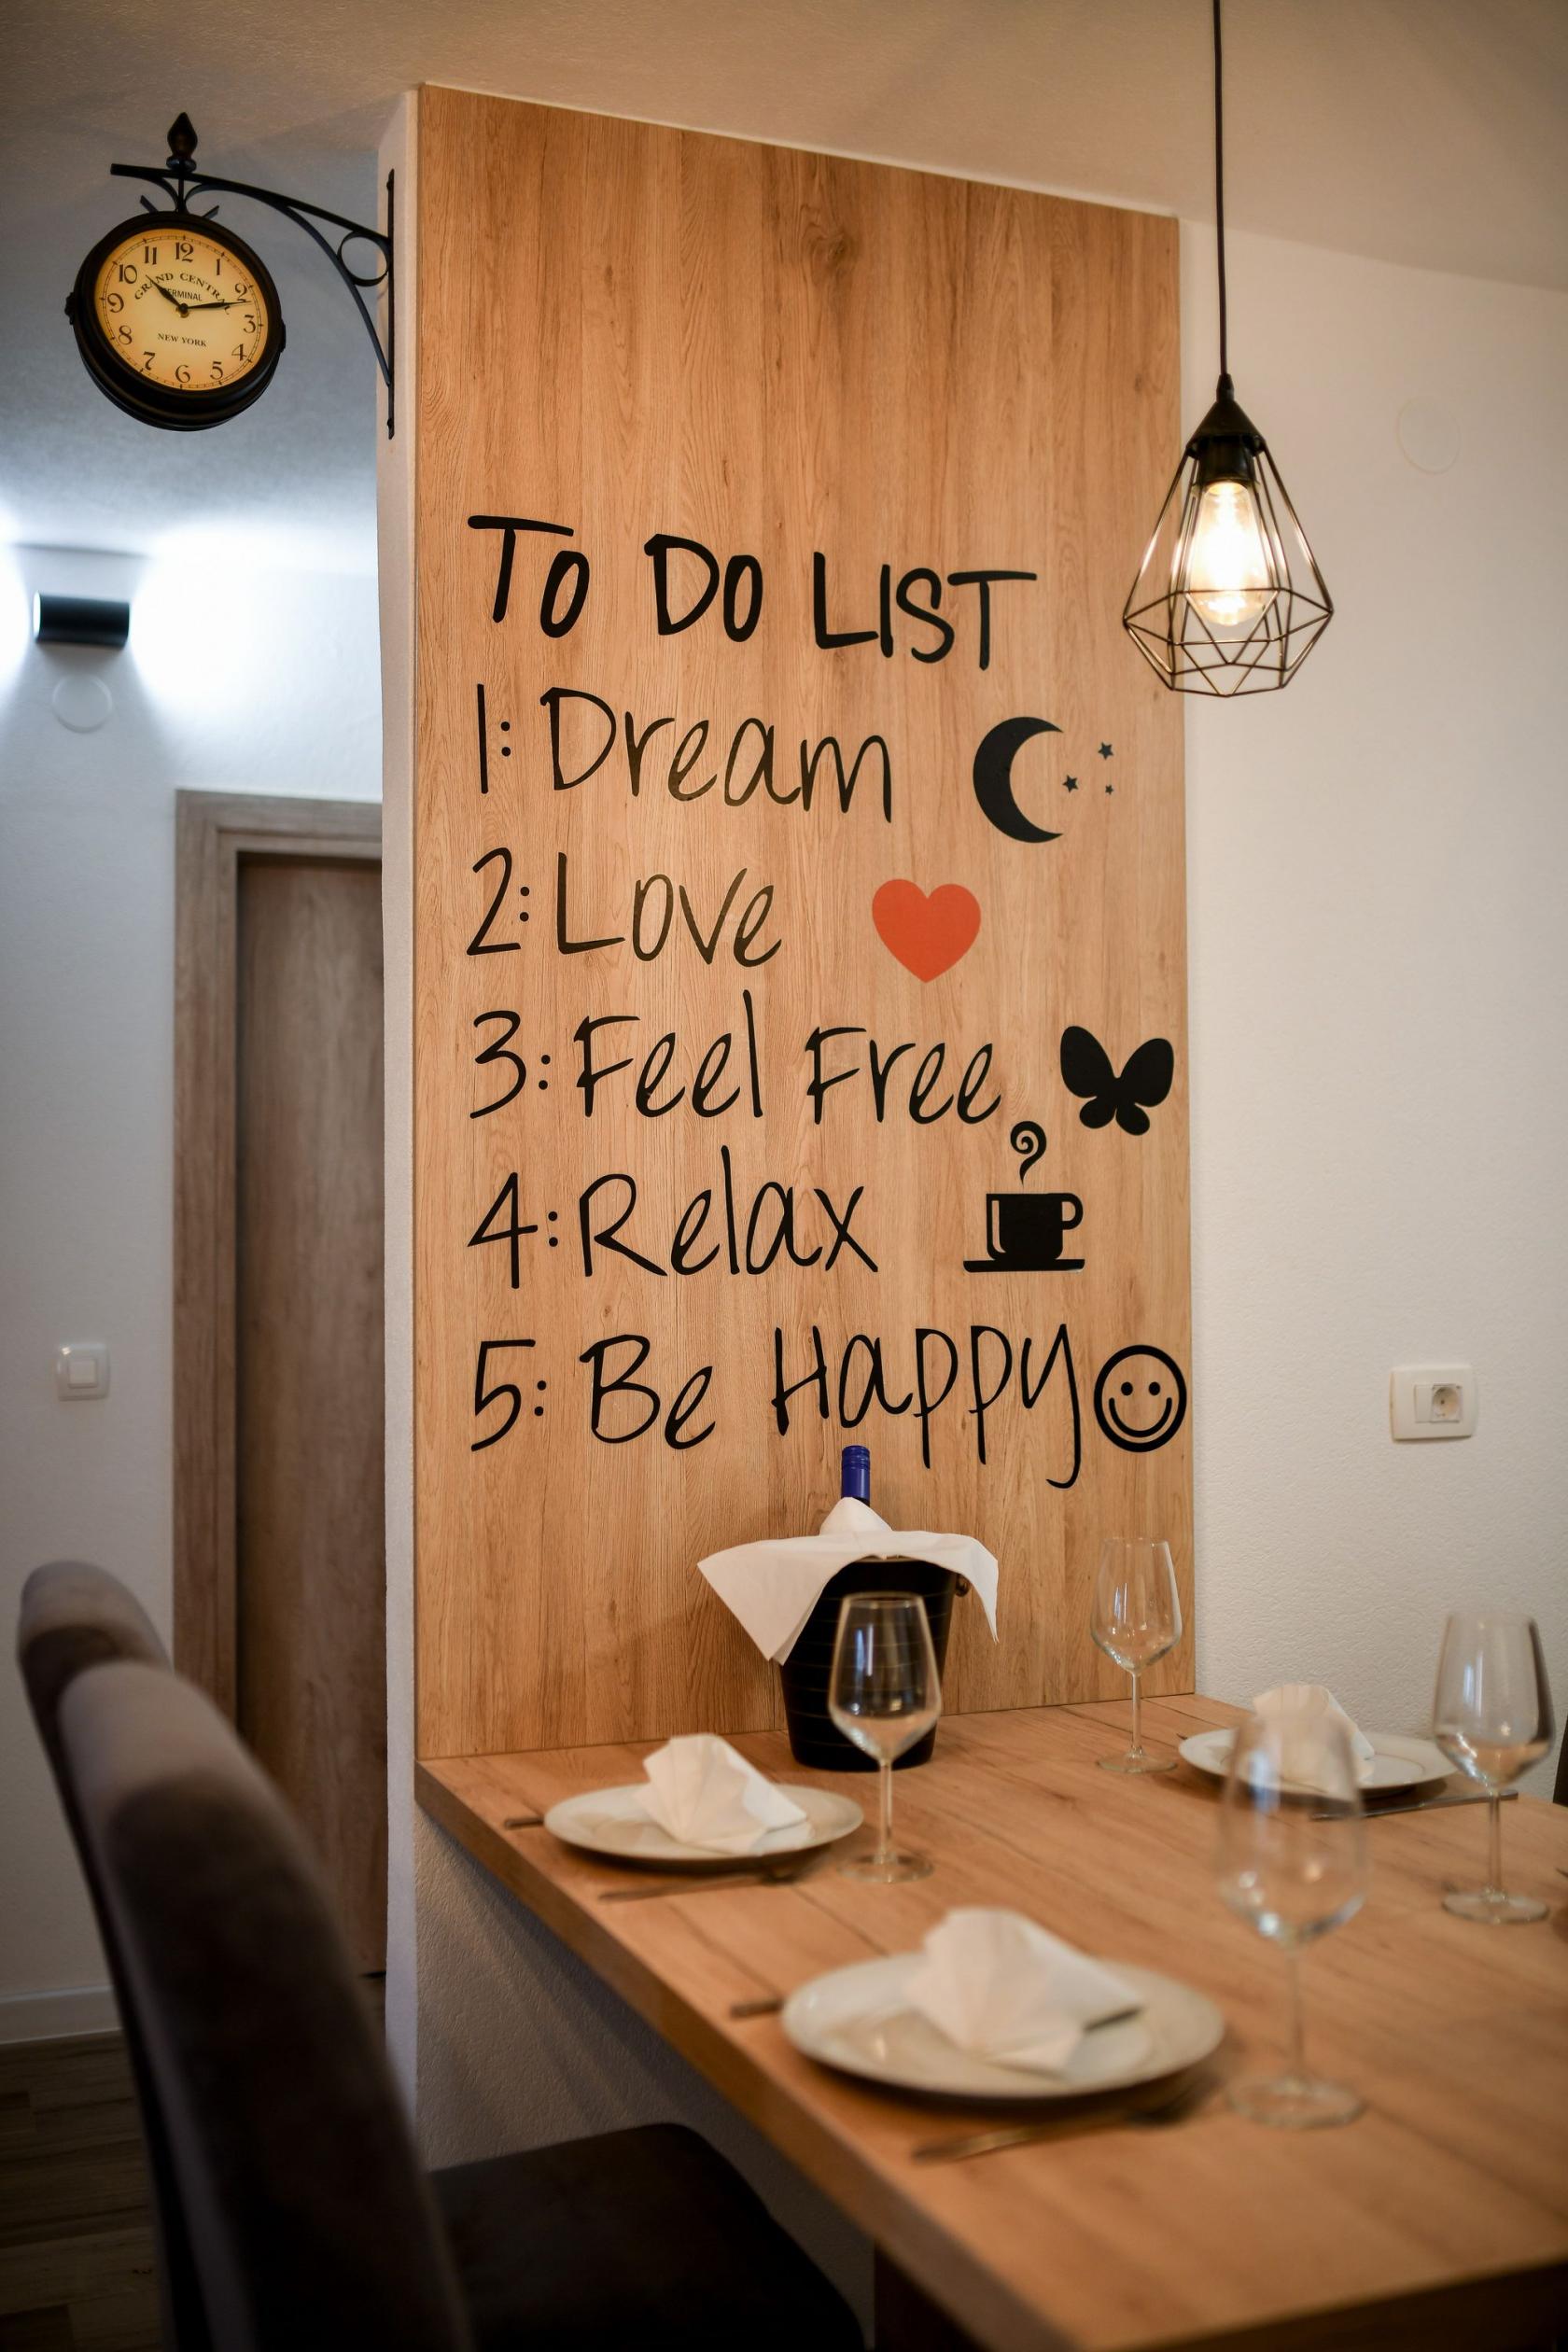 12
11
1
10
2
9
3
8
4
7
5
6
GRAND CENTRAL
TERMINAL
NEW YORK
TO DO LIST
1: Dream
2: Love
3: Feel Free
4: Relax
5: Be Happy